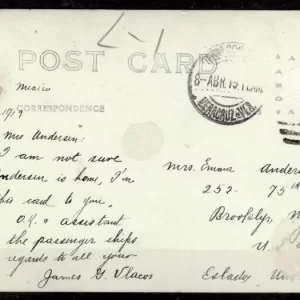 POST CARD
Mexico
/19
CORRESPONDENCE
Mrs Andersen:
I am not sure
Andersen is home, I'm
this card to you.
O.K. & assistant
the passenger ships
regards to all your
James G. Vlacos
8-ABR.19
VERACRUZ-VER.
Mrs. Emma Anders
252- 75th
Brooklyn, N
U.
Estados Uni